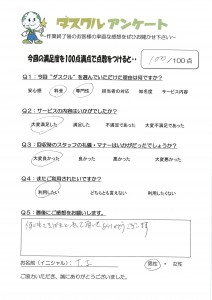 ダスクル アンケート
~作業終了後のお客様の率直な感想をぜひお聞かせ下さい~
今回の満足度を100点満点で点数をつけると・・ 100/100点
Q1:今回"ダスクル"を選んでいただけた理由は何ですか?
安心感 料金 専門性 担当者の対応 知名度 サービス内容
Q2:サービスの内容はいかがでしたか?
大変満足した 満足した 不満足であった 大変不満であった
Q3:回収時のスタッフの礼儀・マナーはいかがだったでしょうか?
大変良かった 良かった 悪かった 大変悪かった
Q4:またご利用されたいですか?
利用したい どちらとも言えない 利用したくない
Q5:最後にご感想をお願いします。
お名前(イニシャル): T.I 男性 ・ 女性
ご協力いただき、誠にありがとうございました。